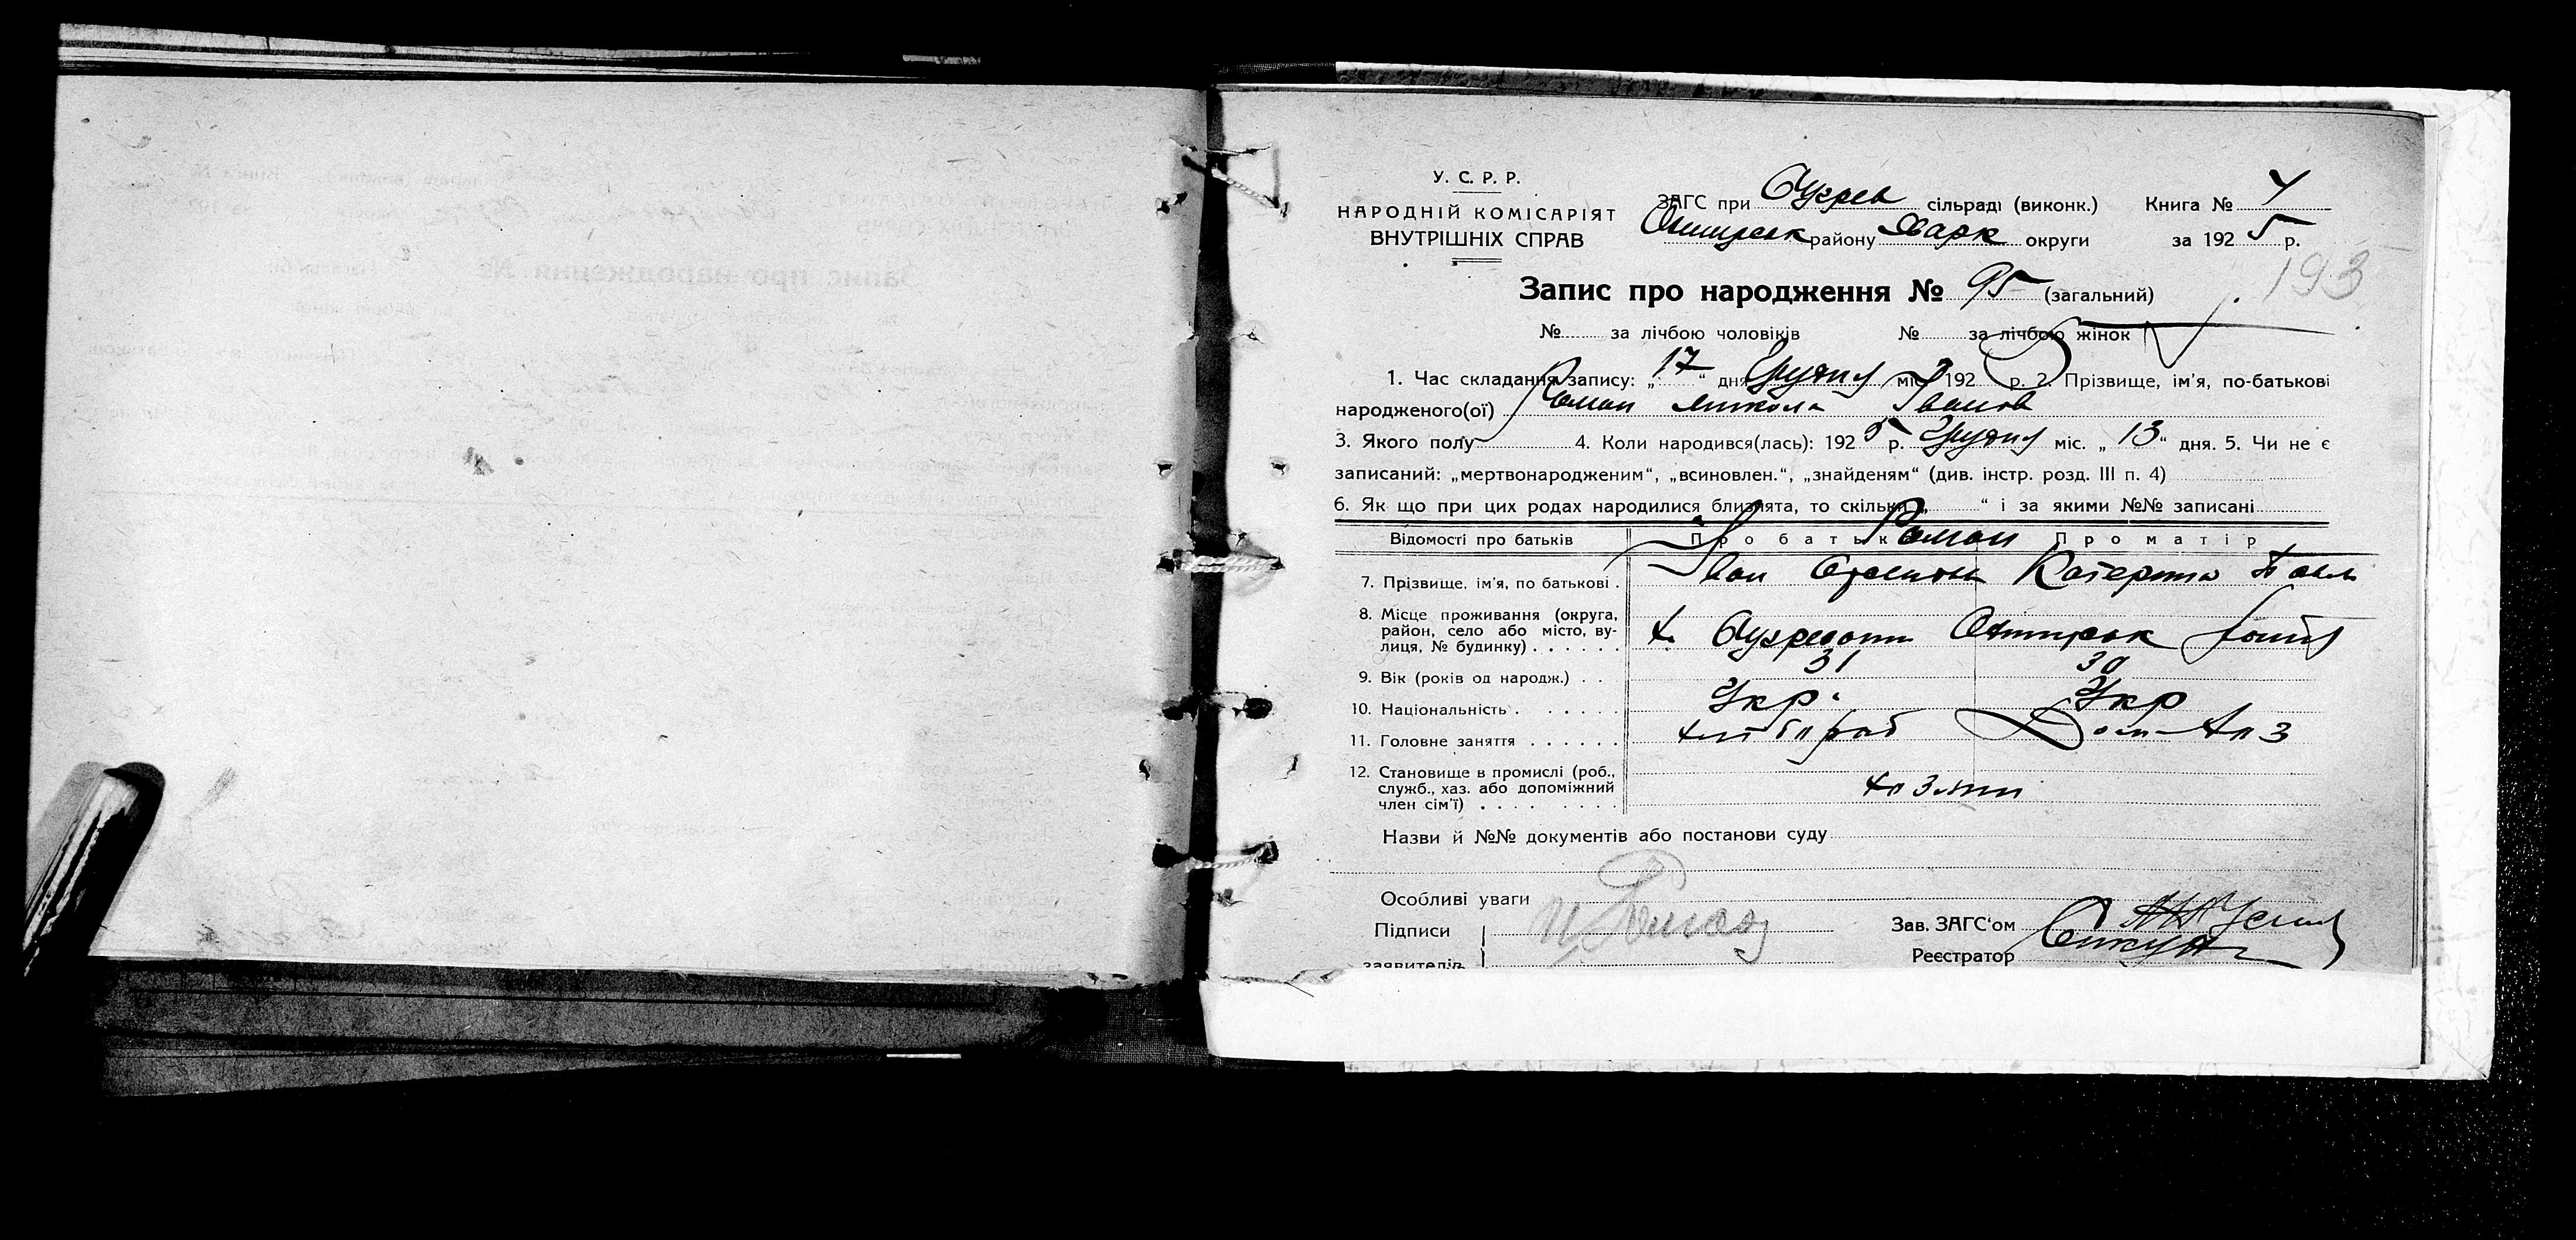 У. С. Р. Р.
НАРОДНІЙ КОМІСАРІЯТ
ВНУТРІШНІХ СПРАВ
ЗАГС при сільраді (виконк.) Книга №
району Харк округи за 1925 р.
193
Запис про народження № 95 (загальний)
№ за лічбою чоловіків № за лічбою жінок
1. Час складання запису: „17“ дня Грудня міс 192 р. 2. Прізвище, ім'я, по-батькові
народженого(ої) Роман Микола Іванов
3. Якого полу 4. Коли народився(лась): 1925 р. Грудня міс. „13“ дня. 5. Чи не є
записаний: „мертвонародженим“, „всиновлен.“, „знайденям“ (див. інстр. розд. III п. 4)
6. Як що при цих родах народилися близнята, то скільки „ “ і за якими №№ записані
Відомості про батьків Про батька Про матір
Роман
7. Прізвище, ім'я, по батькові . Іван Катерина Павл
8. Місце проживання (округа,
район, село або місто, ву-
лиця, № будинку) . . . . . . х.
9. Вік (років од народж.) . . 31 30
10. Національність . . . . . . Укр. Укр
11. Головне заняття . . . . . . хлібороб Дом-хоз
12. Становище в промислі (роб.,
служб., хаз. або допоміжний
член сім'ї) . . . . . . . .
Назви й №№ документів або постанови суду
Особливі уваги
Підписи
заявителів
Зав. ЗАГС'ом
Реєстратор